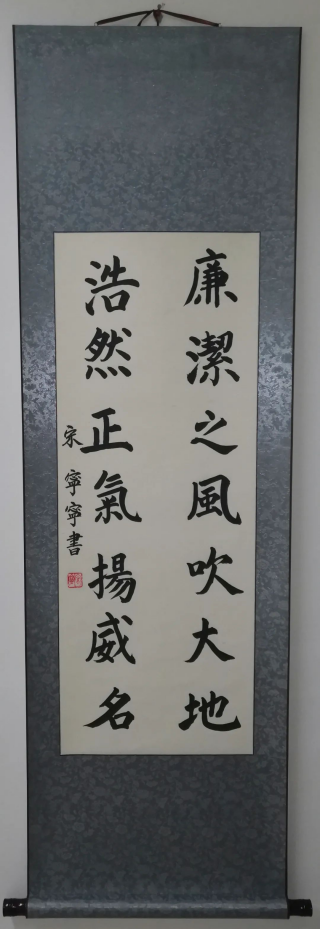 廉潔之風吹大地
浩然正氣揚威名
宋寧寧書